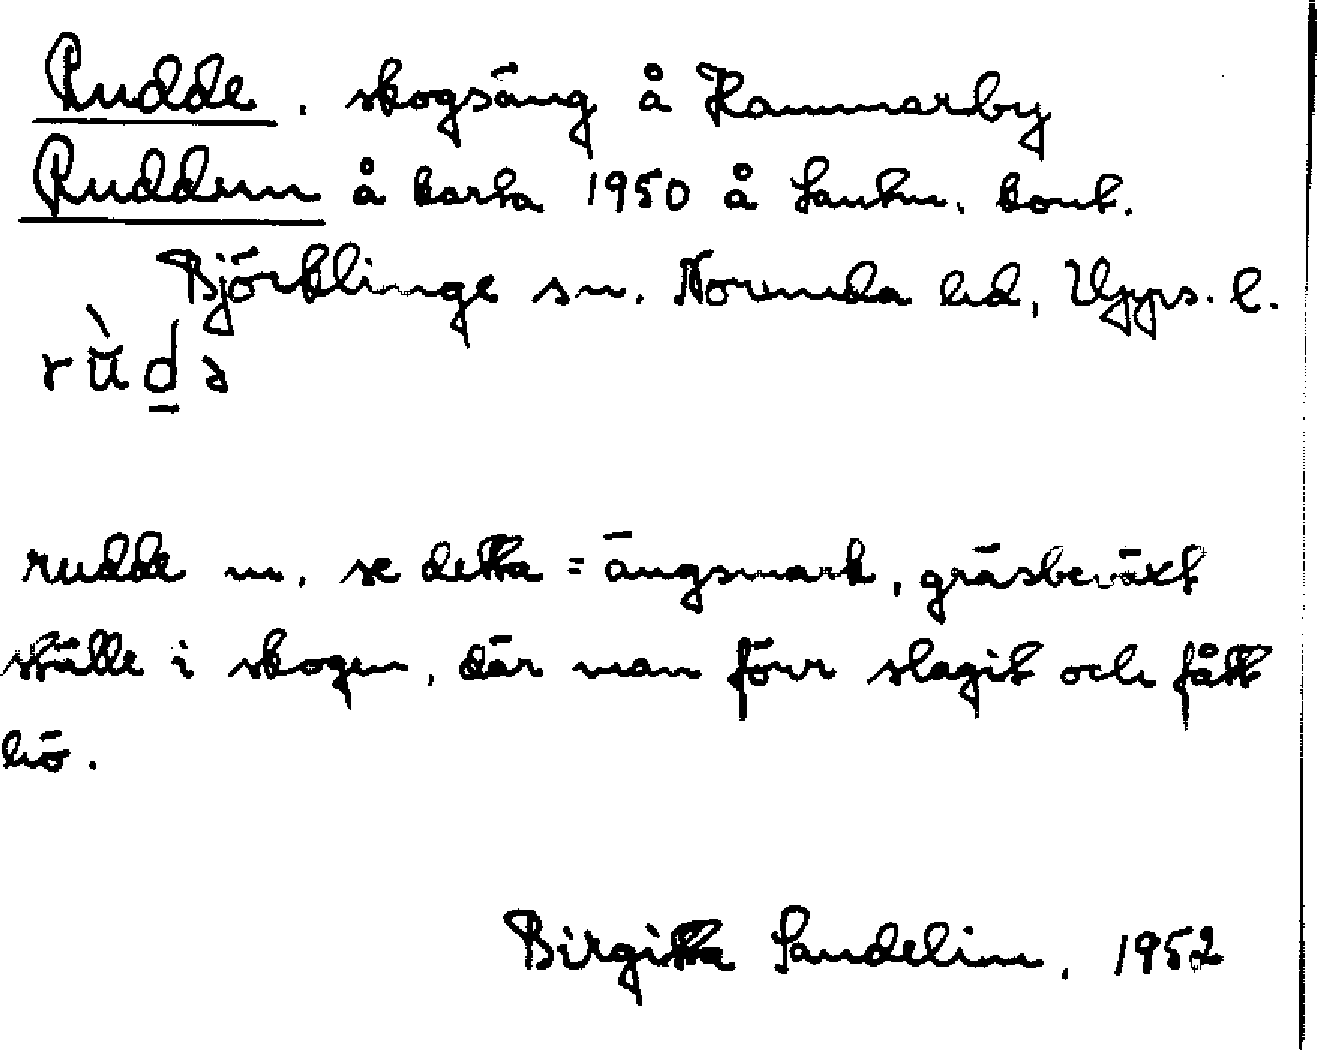 Rudde, skogsäng å Hammarby
Rudden å karta 1950 å Lantm. kont.
Björklinge sn. Norunda hd, Upps. l.
rùdə
rudde m. se detta = ängsmark, gräsbeväxt
ställe i skogen, där man förr slagit och fått
hö.
Birgitta Sandelin, 1952